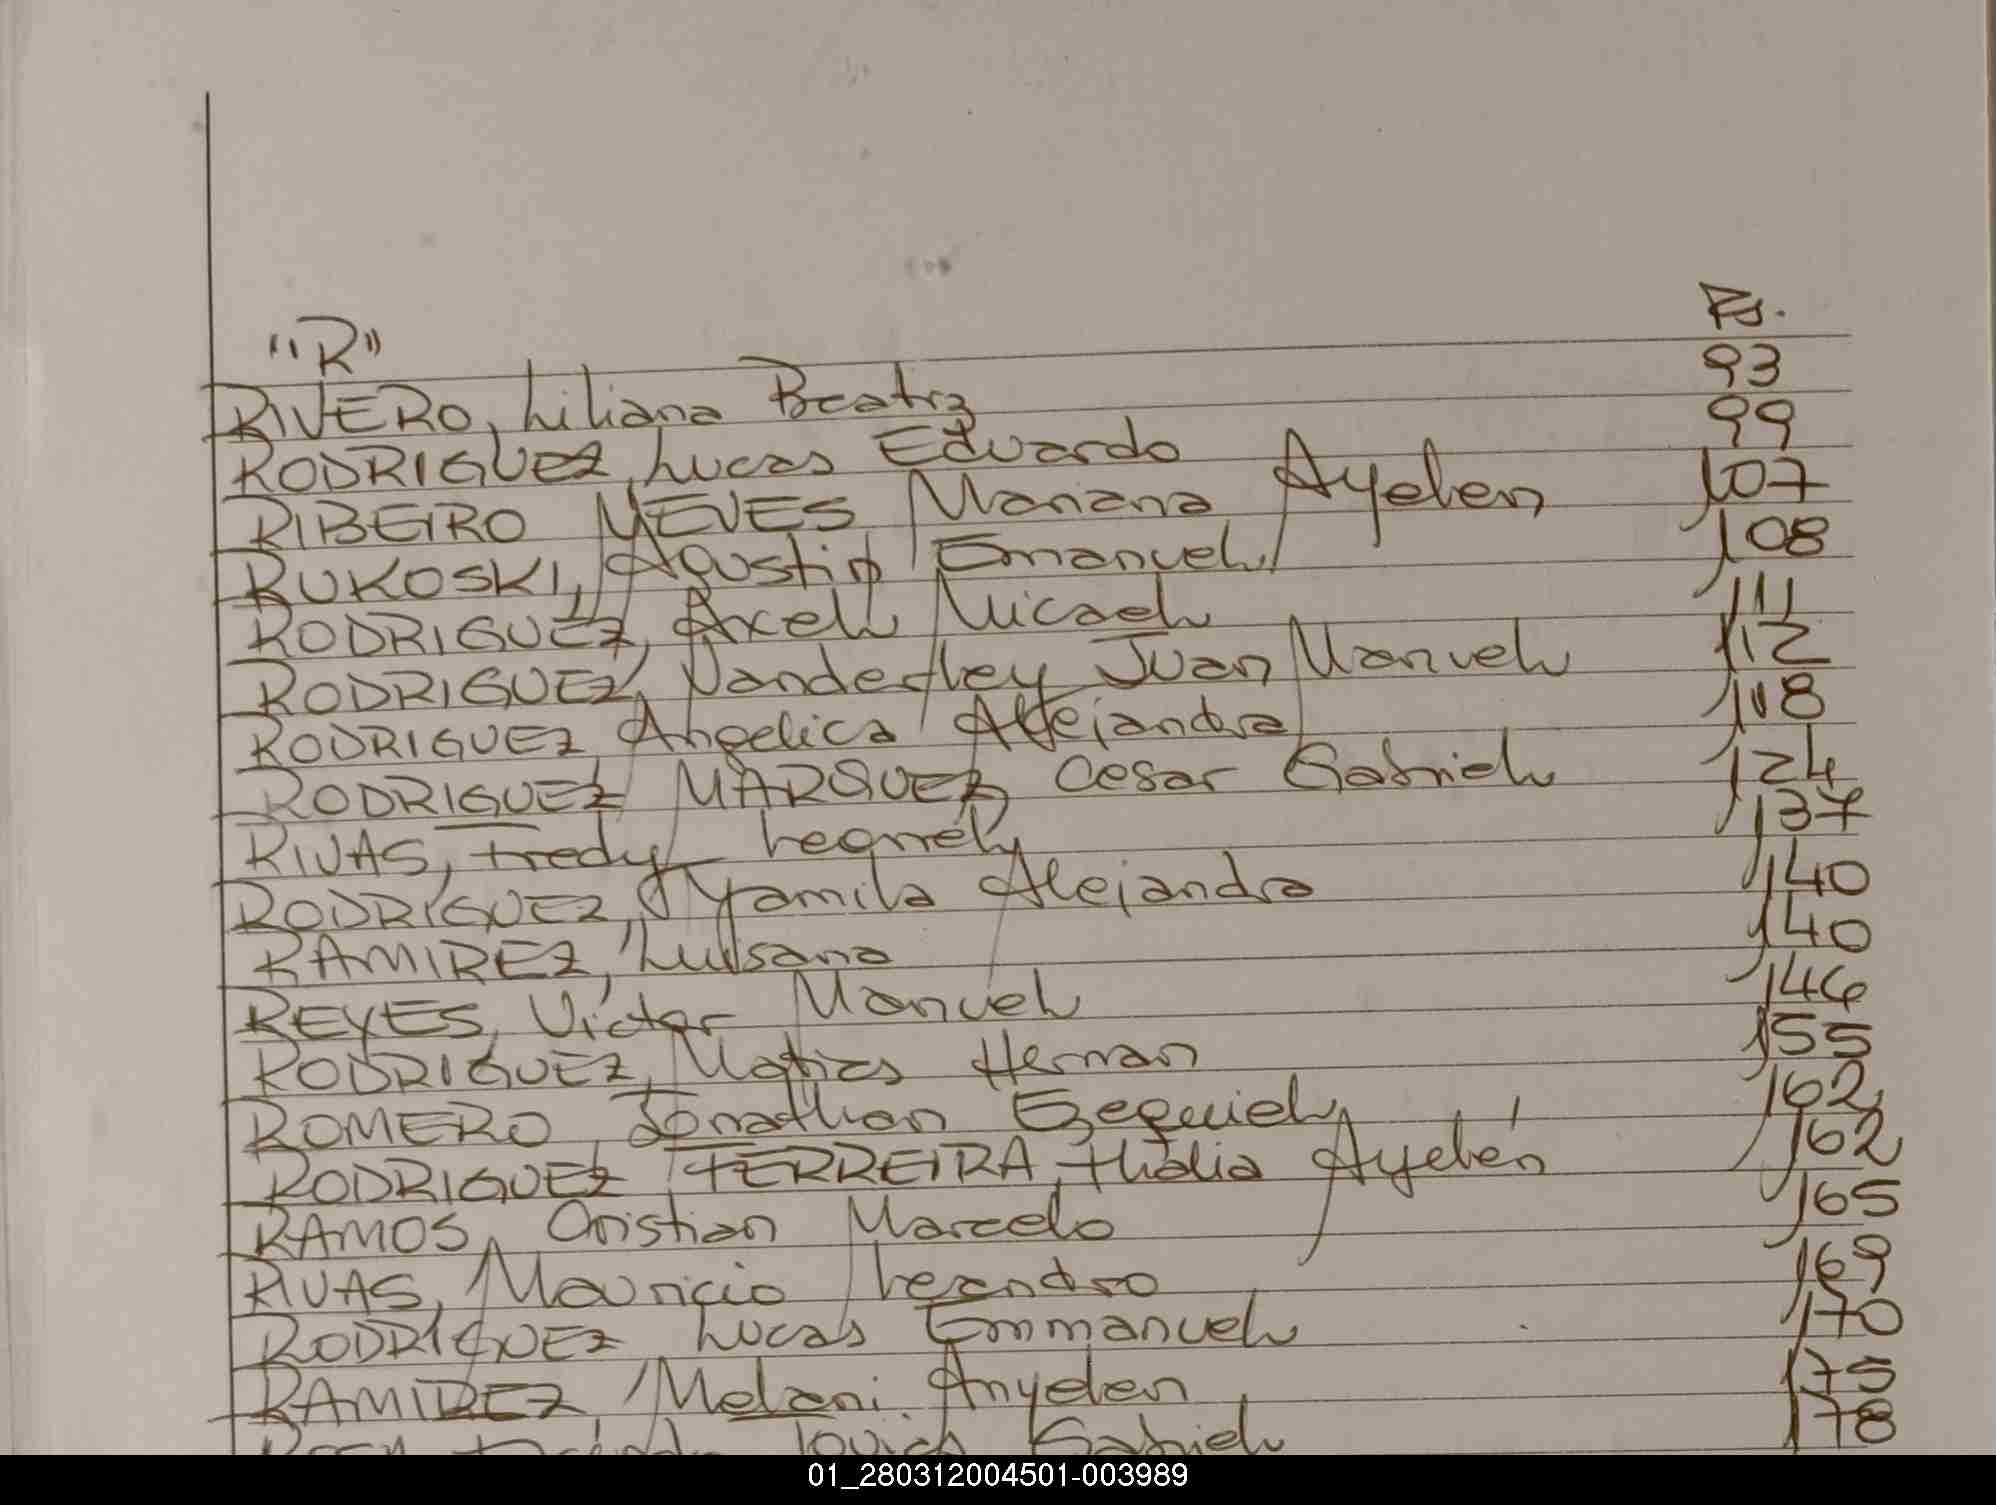 "R" Fs.
RIVERO, Liliana Beatriz 93
RODRIGUEZ, Lucas Eduardo 99
RIBEIRO NEVES Mariana Ayelen 107
RUKOSKI, Agustin Emanuel 108
RODRIGUEZ, Axel Micael 111
RODRIGUEZ, Vanderley Juan Manuel 112
RODRIGUEZ Angelica Alejandra 118
RODRIGUEZ MARQUEZ, Cesar Gabriel 124
RIVAS, Fredy 137
RODRIGUEZ, Yamila Alejandra 140
RAMIREZ, Luisana 140
REYES, Victor Manuel 146
RODRIGUEZ, Matias Hernan 155
ROMERO, Jonathan Ezequiel 162
RODRIGUEZ FERREIRA, thalia Ayelén 162
RAMOS, Cristian Marcelo 165
RIVAS, Mauricio Leandro 169
RODRIGUEZ Lucas Emmanuel 170
RAMIREZ, Melani Anyelen 175
Gabriel 178
01_280312004501-003989